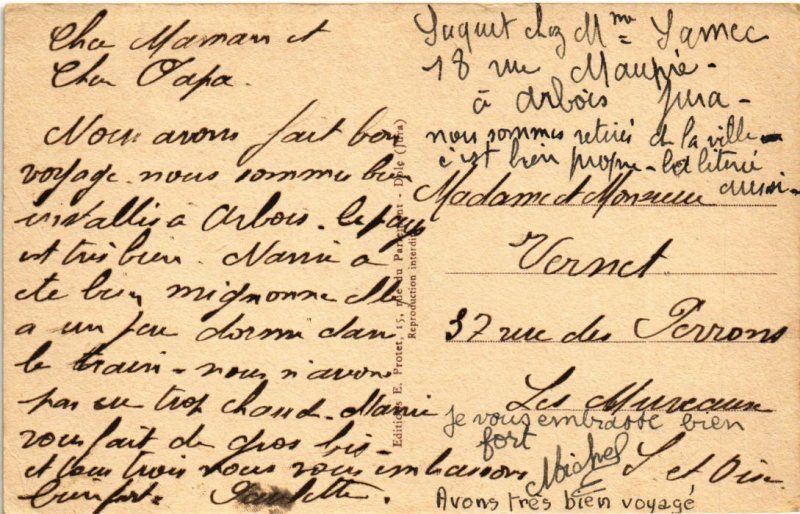 Cher Maman et
Cher Papa.
Nous avons fait bon
voyage. nous sommes bien
installés à Arbois. le pays
est très bien. Nanie a
ete bien mignonne elle
a un peu dormi dans
le train - nous n'avons
pas eu trop chaud. Nanie
vous fait de gros bis -
et tous trois nous vous embrassons
bien fort. Paulette.
Editions E. Protet, 15, rue du Parlement - Dole (Jura)
Reproduction interdite
Suquet chez Mme
18 rue Maupré -
à Arbois Jura -
nous sommes retirés de la ville -
c'est bien propre - la literie
aussi -
Madame et Monsieur
Vernet
37 rue des Perrons
Les Mureaux
S et Oise
je vous embrasse bien
fort
Michel
Avons très bien voyagé